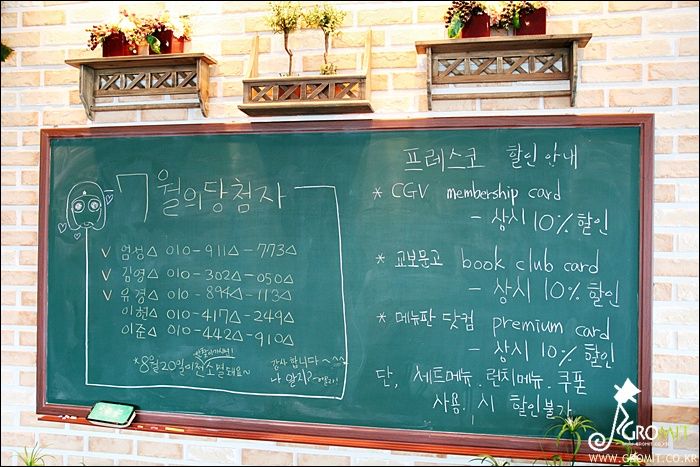 7월의당첨자
V 엄성△ 010-911△-773△
V 김영△ 010-302△-050△
V 유경△ 010-894△-113△
이현△ 010-417△-249△
이준△ 010-442△-910△
*8월20일이전소멸돼요~
감사합니다~^^
나 알지?
프레스코 할인안내
* CGV membership card
- 상시 10% 할인
* 교보문고 book club card
- 상시 10% 할인
* 메뉴판 닷컴 premium card
- 상시 10% 할인
단, 세트메뉴, 런치메뉴, 쿠폰
사용 시 할인불가
GROMIT
WWW.GROMIT.CO.KR